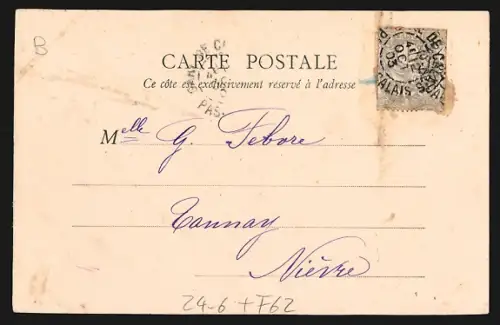 B
CARTE POSTALE
Ce côté est exclusivement reservé à l'adresse
Melle G. Febore
Tannay
Nièvre
24-6 + F62